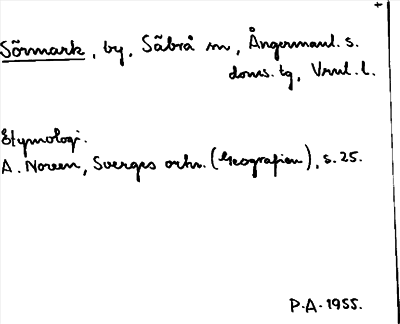 Sörmark, by, Säbrå sn, Ångermanl. s.
doms. tg, Vrnl. l.
Etymologi.
A. Noreen, Sverges ortn. (Geografien), s. 25.
P.A. 1955.